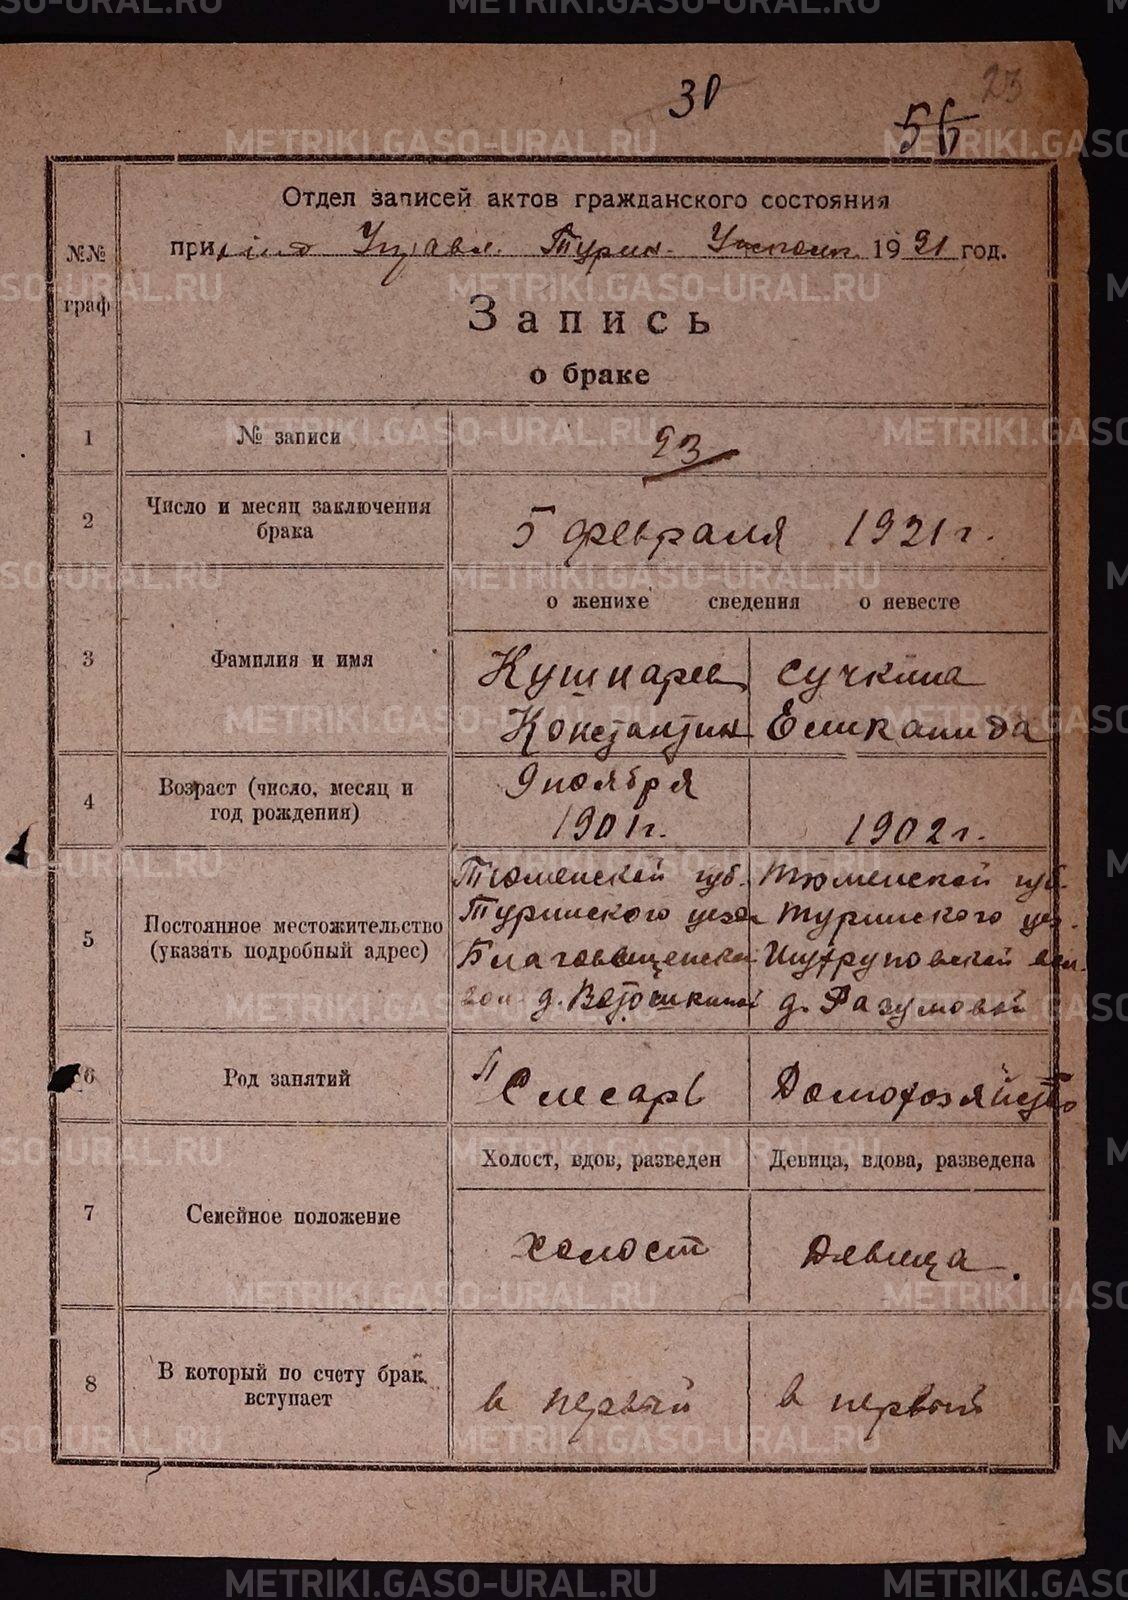 METRIKI.GASO-URAL.RU
23
30
56
№№ граф
Отдел записей актов гражданского состояния
при Управл. Турин. Уисполк. 1921 год.
Запись
о браке
1
№ записи
23
2
Число и месяц заключения брака
5 февраля 1921 г.
о женихе сведения о невесте
3
Фамилия и имя
Кушнарев
Константин
Сучкина
Еликанида
4
Возраст (число, месяц и год рождения)
9 ноября
1901 г.
1902 г.
5
Постоянное местожительство (указать подробный адрес)
Тюменской губ.
Туринского уезда
Благовещенской
вол д. Ветошкиной
Тюменской губ.
Туринского уез.
вол.
д. Разумовой
6
Род занятий
Слесарь
Домохозяйство
Холост, вдов, разведен
Девица, вдова, разведена
7
Семейное положение
холост
Девица.
8
В который по счету брак вступает
в первый
в первый